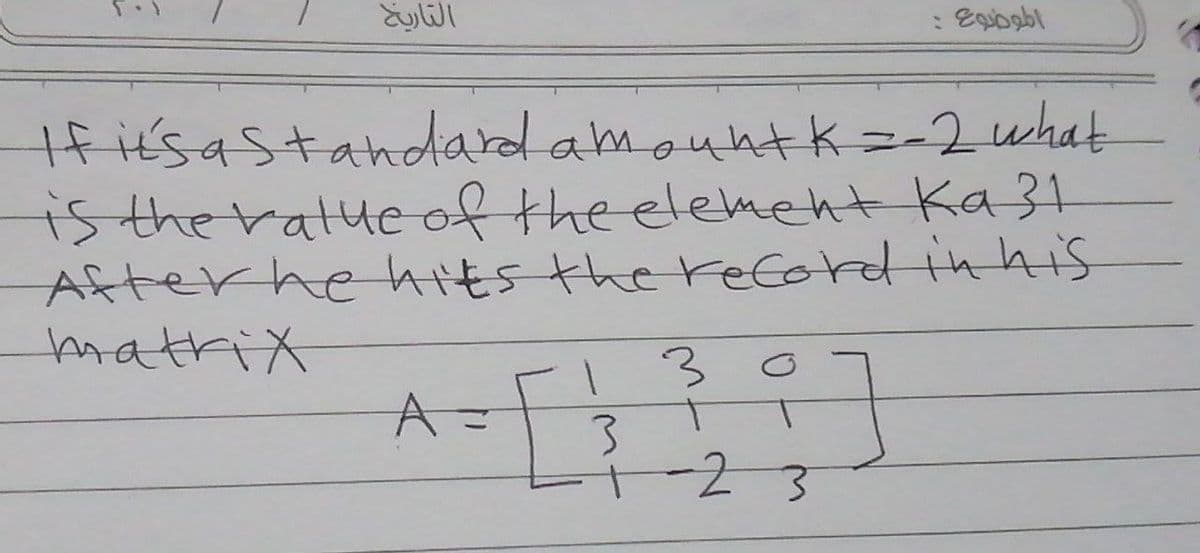 الموضوع : التاريخ / / ٢٠١
If it's a standard amount k = -2 what
is the value of the element Ka 31
After he hits the record in his
matrix
A = [ 1 3 0
3 1 1
1 -2 3 ]